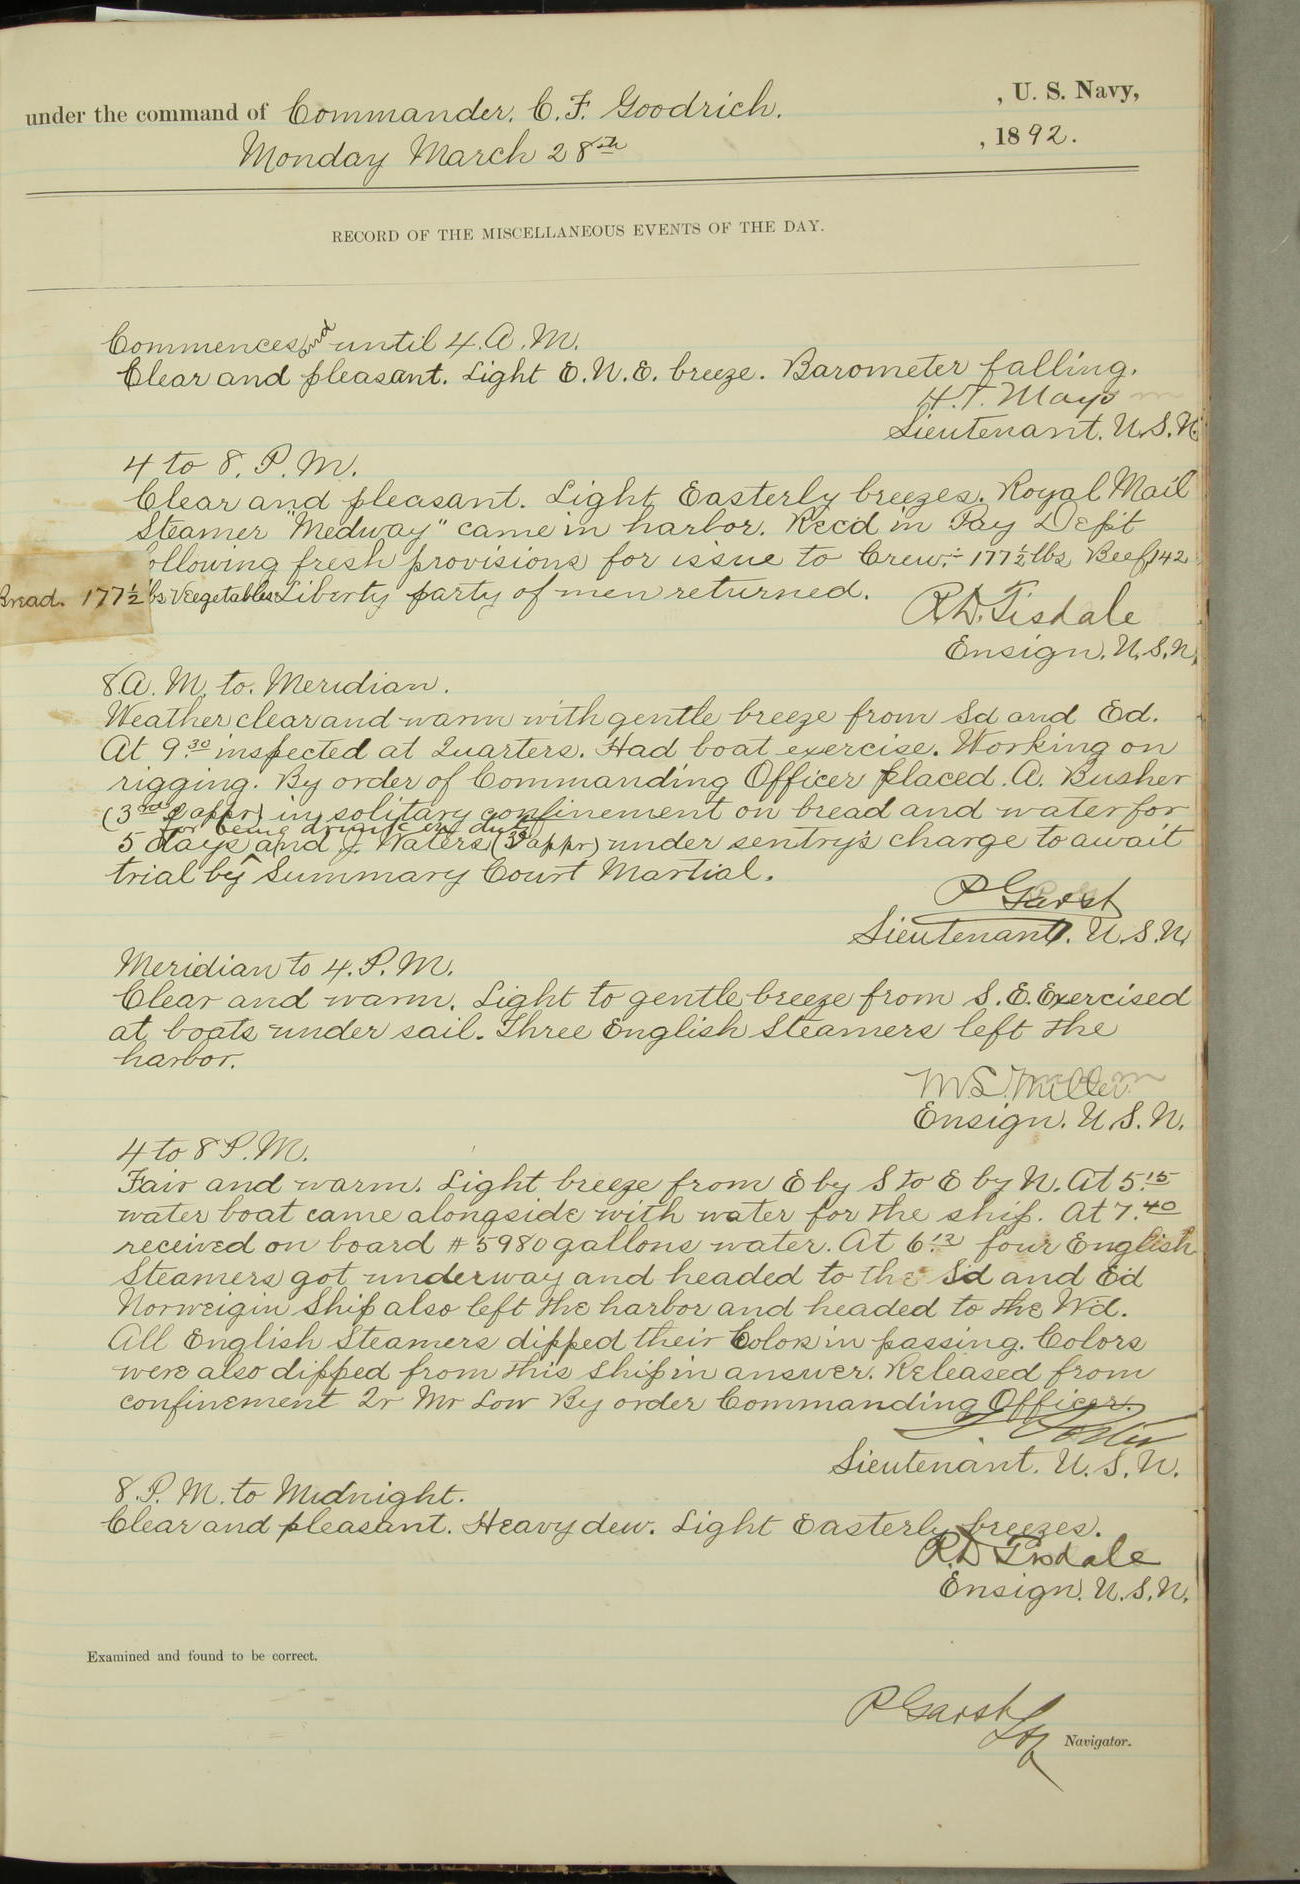 under the command of Commander. C. F. Goodrich. , U. S. Navy,
Monday March 28th , 1892.
RECORD OF THE MISCELLANEOUS EVENTS OF THE DAY.
Commences and until 4. A. M.
Clear and pleasant. Light E. N. E. breeze. Barometer falling.
H. T. Mayo
Lieutenant. U. S. N.
4 to 8. P. M.
Clear and pleasant. Light Easterly breezes. Royal Mail
Steamer "Medway" came in harbor. Recd in Pay Dept
ollowing fresh provisions for issue to Crew:- 177 1/2 lbs Beef, 142
Bread. 177 1/2 lbs Veegetables Liberty party of men returned.
R. D. Tisdale
Ensign. U. S. N.
8 A. M. to. Meridian.
Weather clear and warm with gentle breeze from Sd and Ed.
At 9.30 inspected at Quarters. Had boat exercise. Working on
rigging. By order of Commanding Officer placed. A. Busher
(3rd appr) in solitary confinement on bread and water for
for being drunk on duty
5 days and J. Waters (3d appr) under sentry's charge to await
trial by ^ Summary Court Martial.
P Garst
Lieutenant. U. S. N.
Meridian to 4. P. M.
Clear and warm. Light to gentle breeze from S. E. Exercised
at boats under sail. Three English Steamers left the
harbor.
M. L. Miller
Ensign. U. S. N.
4 to 8 P. M.
Fair and warm. Light breeze from E by S to E by N. At 5.15
water boat came alongside with water for the ship. At 7.40
received on board # 5980 gallons water. At 6.12 four English
Steamers got underway and headed to the Sd and Ed
Norweigin Ship also left the harbor and headed to the Wd.
All English Steamers dipped their Colors in passing. Colors
were also dipped from this ship in answer. Released from
confinement Qr Mr Low By order Commanding Officer.
Lieutenant. U. S. N.
8. P. M. to Midnight.
Clear and pleasant. Heavy dew. Light Easterly breezes.
R. D Tisdale
Ensign. U. S. N.
Examined and found to be correct.
P Garst
Navigator.